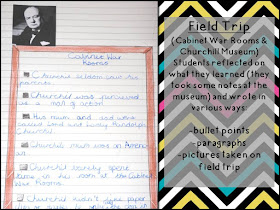 Cabinet War
Rooms
Churchill seldom saw his
parents.
Churchill was perceived
as a man of action
His mum and dad were
called Lord and Lady Randolph
Churchill.
Churchill's mum was an
American
Churchill rarely spent
time in his room at the Cabinet
War Rooms.
Churchill didn't type paper
Field Trip
(Cabinet War Rooms &
Churchill Museum)
Students reflected on
what they learned (they
took some notes at the
museum) and wrote in
various ways:
-bullet points
-paragraphs
-pictures taken on
field trip